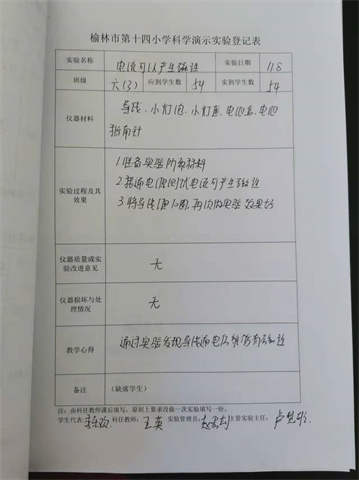 榆林市第十四小学科学演示实验登记表
实验名称 电流可以产生磁性 实验日期 11.8
班级 六(3) 应到学生数 54 实到学生数 54
仪器材料 导线、小灯泡、小灯座、电池盒、电池
指南针
实验过程及其效果 1.准备实验所需材料
2.接通电路测试电流可产生磁性
3.将导线 再次做实验 效果好
仪器质量或实验改进意见 无
仪器损坏与处理情况 无
教学心得 通过实验发现导线通电后 有磁性
备注 (缺席学生)
注:由科任教师课后填写,原则上要求没做一次实验填写一份。
学生代表: 科任教师: 王英 实验管理员: 主管实验主任: